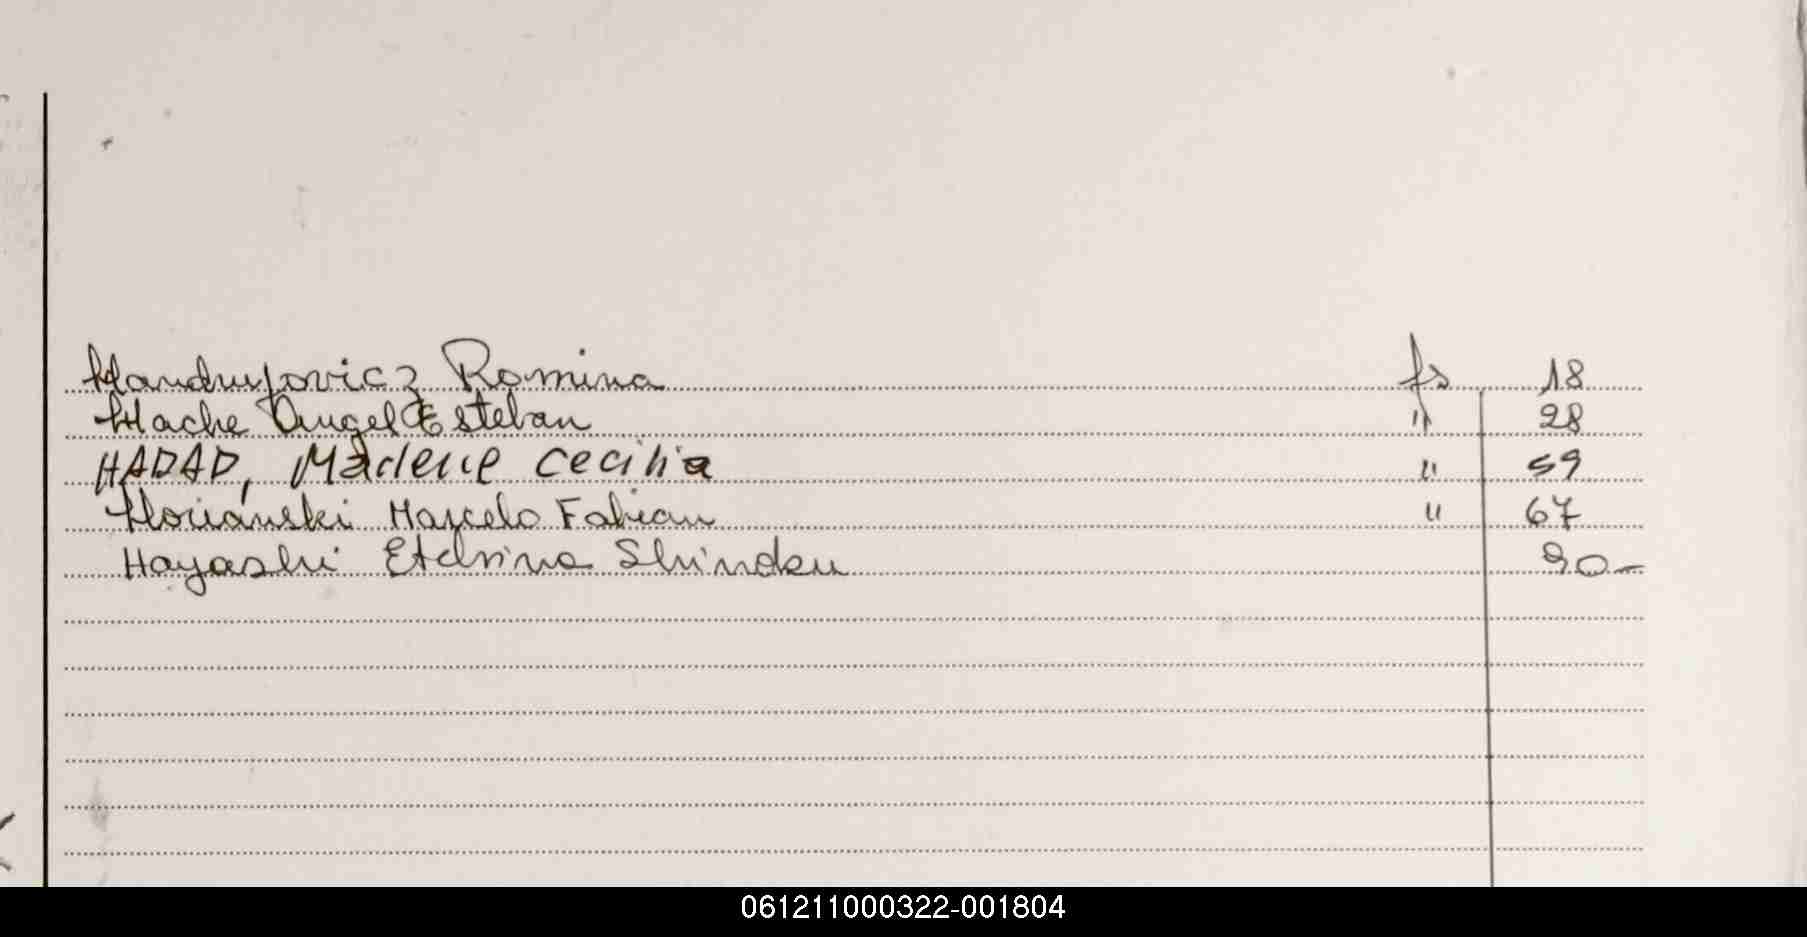 Handrujovicz Romina fs 18
Hache Angel Esteban " 28
HADAD, Marlene Cecilia " 59
Horianski Marcelo Fabian " 67
Hayashi Etelvina Shindou 90-
061211000322-001804